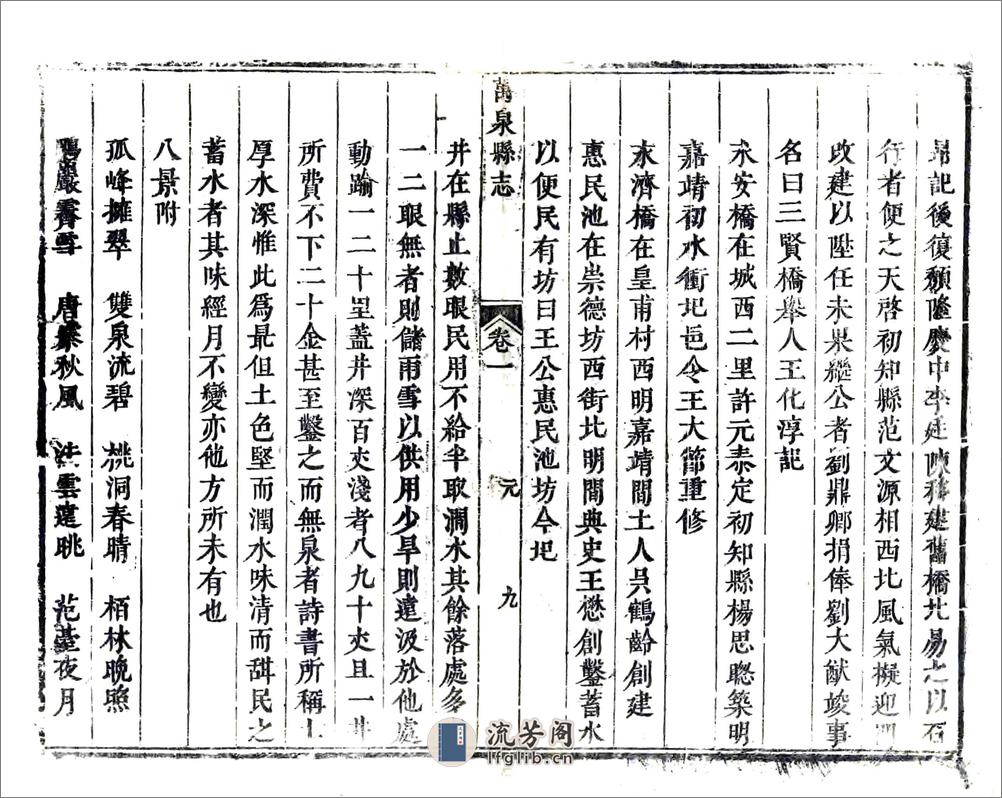 記後復頽隆慶中李廷陳移建舊橋北易之以石
行者便之天啓初知縣范文源相西北風氣擬迎
改建以陞任未果繼公者劉鼎卿捐俸劉大猷竣事
名曰三賢橋舉人王化淳記
永安橋在城西二里許元泰定初知縣楊思聰築明
嘉靖初水衝圯邑令王大節重修
永濟橋在皇甫村西明嘉靖間土人吳鶴齡創建
惠民池在崇德坊西街北明間典史王懋創鑿蓄水
以便民有坊曰王公惠民池坊今圯
萬泉縣志
卷一
元
九
井在縣止數眼民用不給半取澗水其餘落處多
一二眼無者則儲雨雪以供用少旱則遠汲於他處
動踰一二十里蓋井深百丈淺者八九十丈且一井
所費不下二十金甚至鑿之而無泉者詩書所稱土
厚水深惟此爲最但土色堅而潤水味清而甜民之
蓄水者其味經月不變亦他方所未有也
八景附
孤峰擁翠 雙泉流碧 桃洞春晴 栢林晩照
巖霽雪 唐 秋風 法雲遠眺 范臺夜月
流芳阁
lfglib.cn